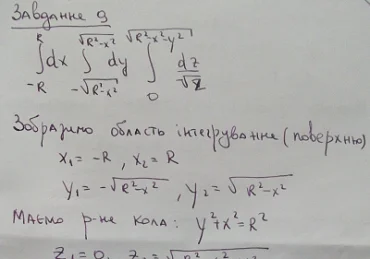 Завдання 9
R √R²-x² √R²-x²-y²
∫dx ∫ dy ∫ dz/√z
-R -√R²-x² 0
Зобразимо область інтегрування (поверхню)
x₁ = -R, x₂ = R
y₁ = -√R²-x², y₂ = √R²-x²
Маємо р-не кола: y²+x²=R²
z₁ = 0,